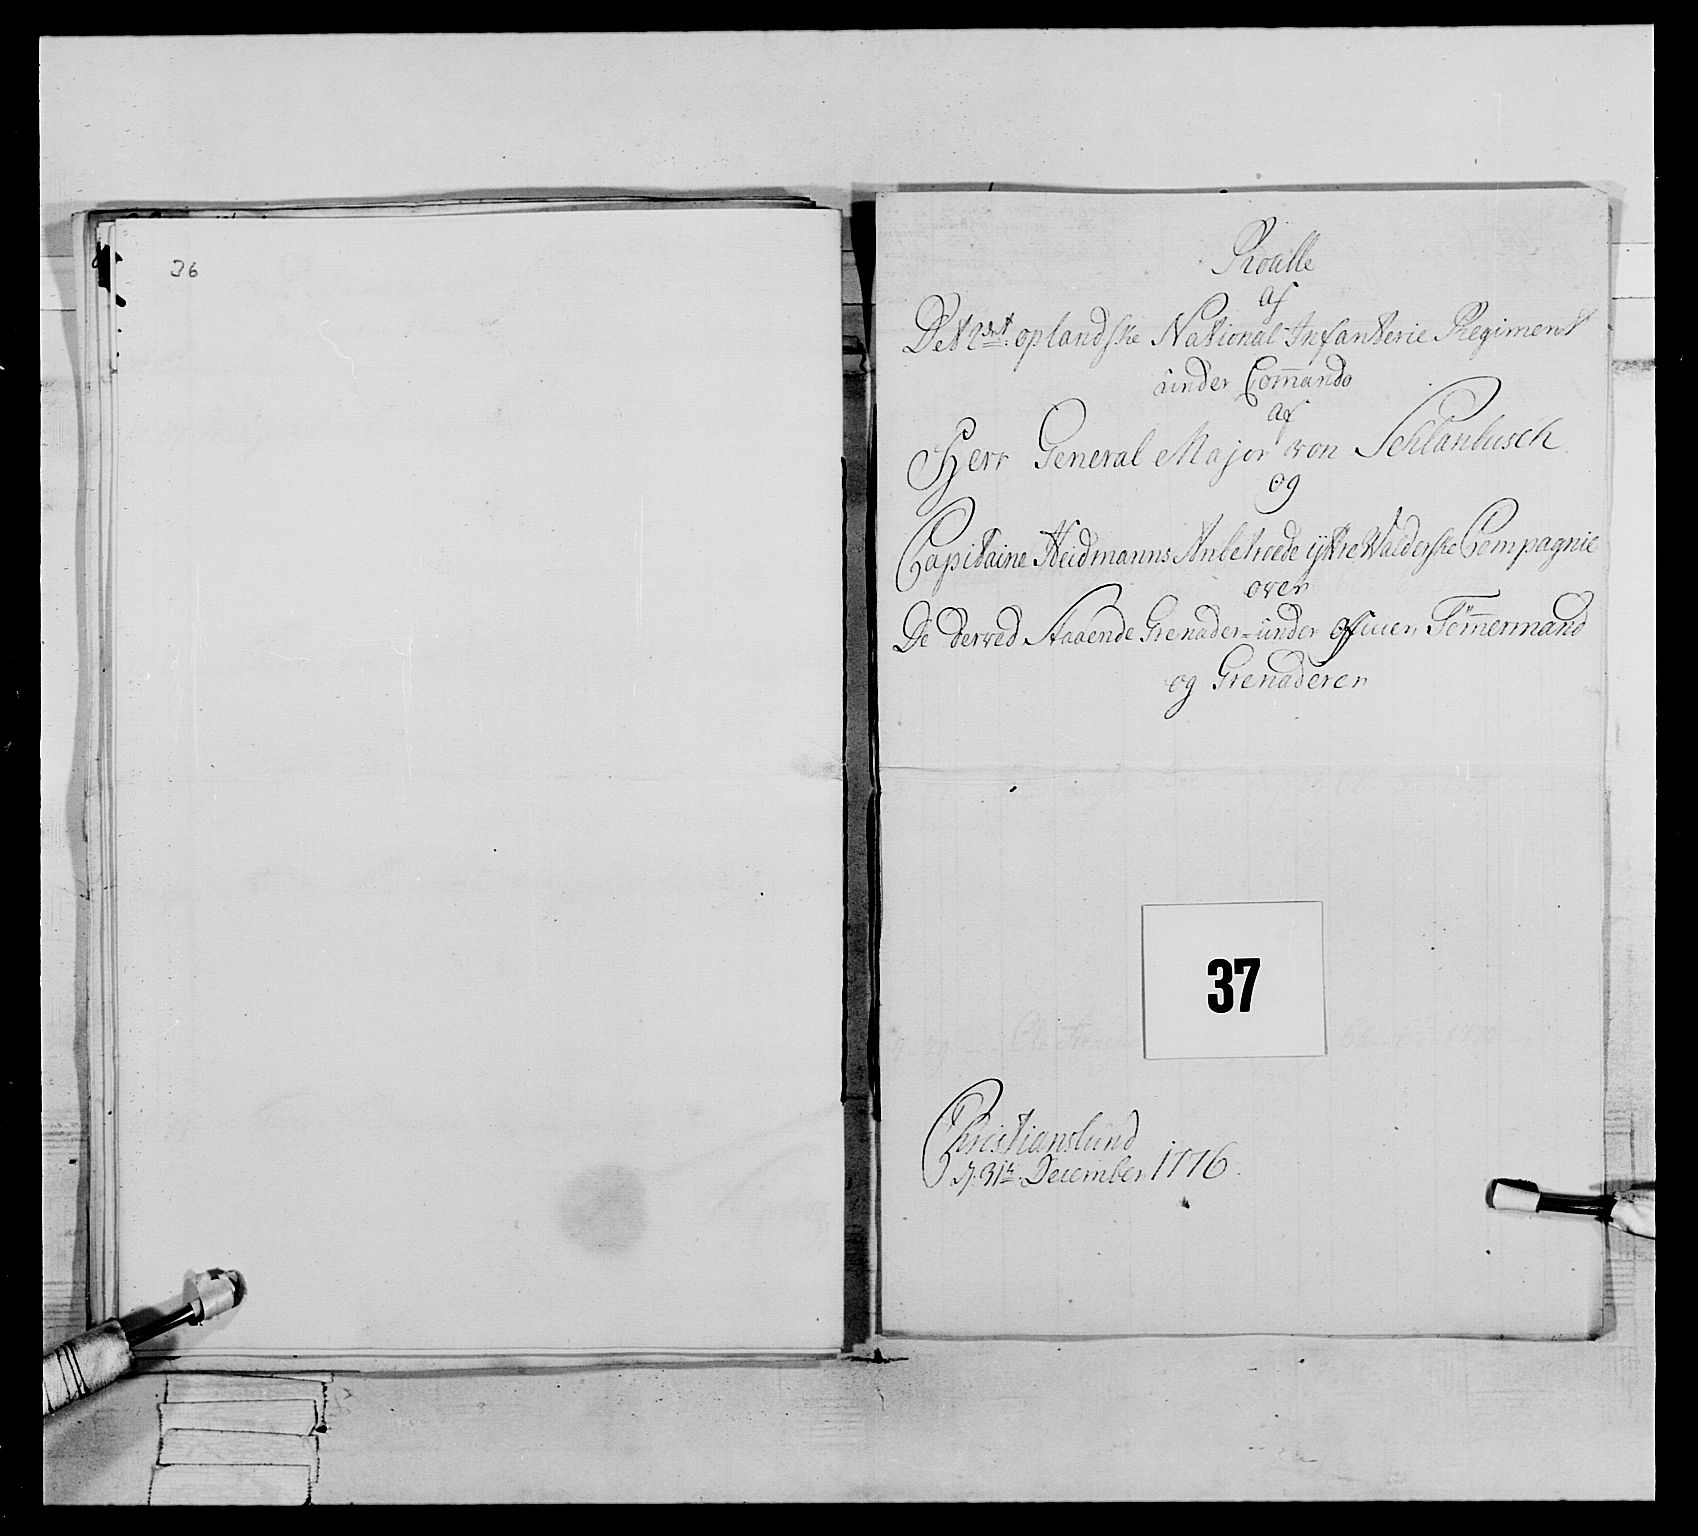 36
Roulle
af
Det 2det oplandske National Infanterie Regiment
under Commando
af
Herr General Major von Schlanbusch
og
Capitaine Heidmanns Anbetroede ÿttre Walderske Compagnie
over
De derved Staaende Grenader-under officier, Tömmermand
og Grenaderer
37
Christianslund
d. 31te December 1776.